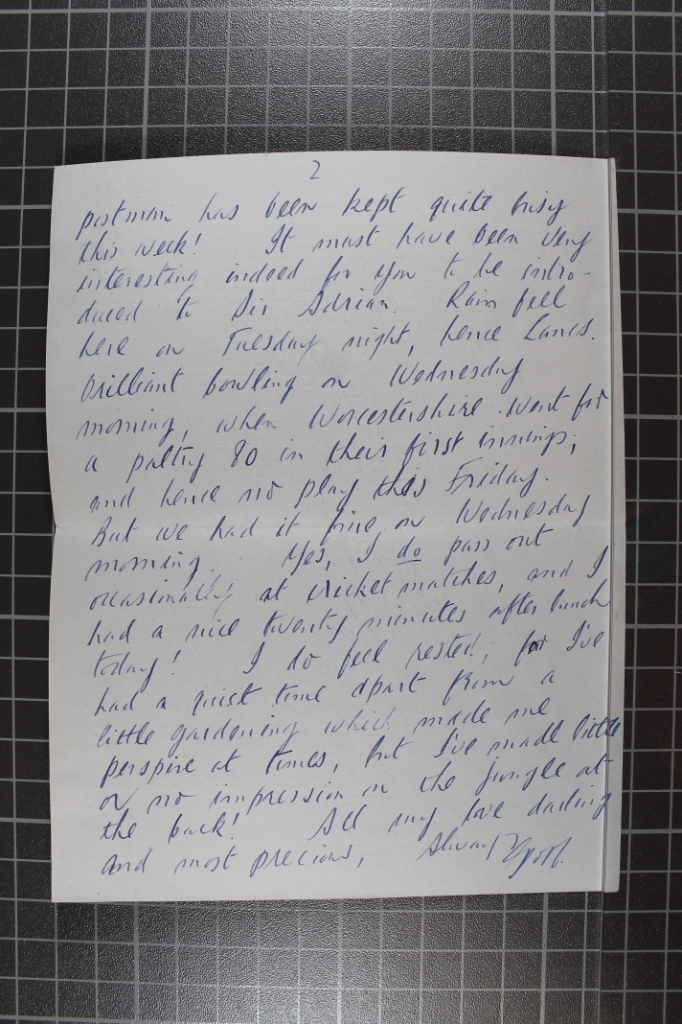 2
postman has been kept quite busy
this week! It must have been very
interesting indeed for you to be intro-
duced to Sir Adrian. Rain fell
here on Tuesday night, hence Lancs.
brilliant bowling on Wednesday
morning, when Worcestershire went for
a paltry 80 in their first innings;
and hence no play this Friday.
But we had it fine on Wednesday
morning. Yes, I do pass out
occasionally at cricket matches, and I
had a nice twenty minutes after lunch
today! I do feel rested, for I've
had a quiet time apart from a
little gardening which made me
perspire at times, but I've made little
or no impression on the jungle at
the back! All my love darling
and most precious, Always